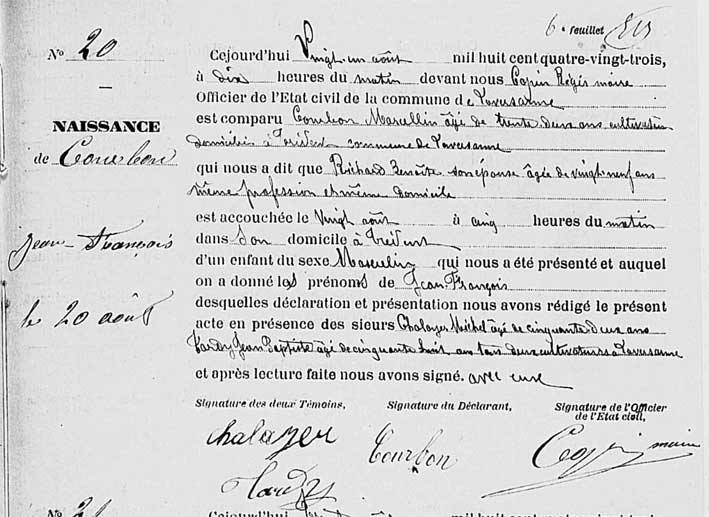 6e feuillet
No 20
NAISSANCE
de Courbon
Jean-François
le 20 août
Cejourd'hui Vingt un août mil huit cent quatre-vingt-trois,
à dix heures du matin devant nous Copin Régis maire
Officier de l'Etat civil de la commune de Taversanne
est comparu Courbon Marcellin âgé de trente deux ans cultivateur
domicilié à commune de Taversanne
qui nous a dit que Richard Benoîte son épouse âgée de vingt neuf ans
même profession et même domicile
est accouchée le Vingt août à cinq heures du matin
dans Son domicile à
d'un enfant du sexe Masculin qui nous a été présenté et auquel
on a donné les prénoms de Jean François
desquelles déclaration et présentation nous avons rédigé le présent
acte en présence des sieurs Chalayer âgé de cinquante deux ans
Tardy Jean Baptiste âgé de cinquante huit ans tous deux cultivateurs à Taversanne
et après lecture faite nous avons signé. avec eux
Signature des deux Témoins, Signature du Déclarant, Signature de l'Officier
de l'Etat civil,
Chalayer Courbon Copin maire
Tardy
No 21
Cejourd'hui mil huit cent quatre-vingt-trois